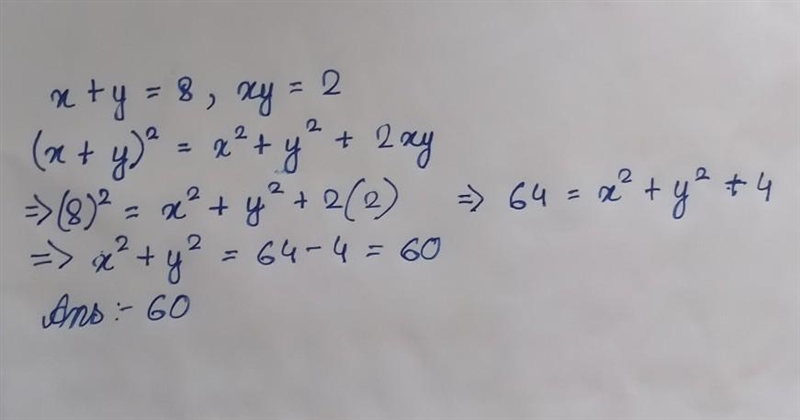 x + y = 8, xy = 2
(x + y)² = x² + y² + 2xy
⇒ (8)² = x² + y² + 2(2) ⇒ 64 = x² + y² + 4
⇒ x² + y² = 64 - 4 = 60
Ans :- 60